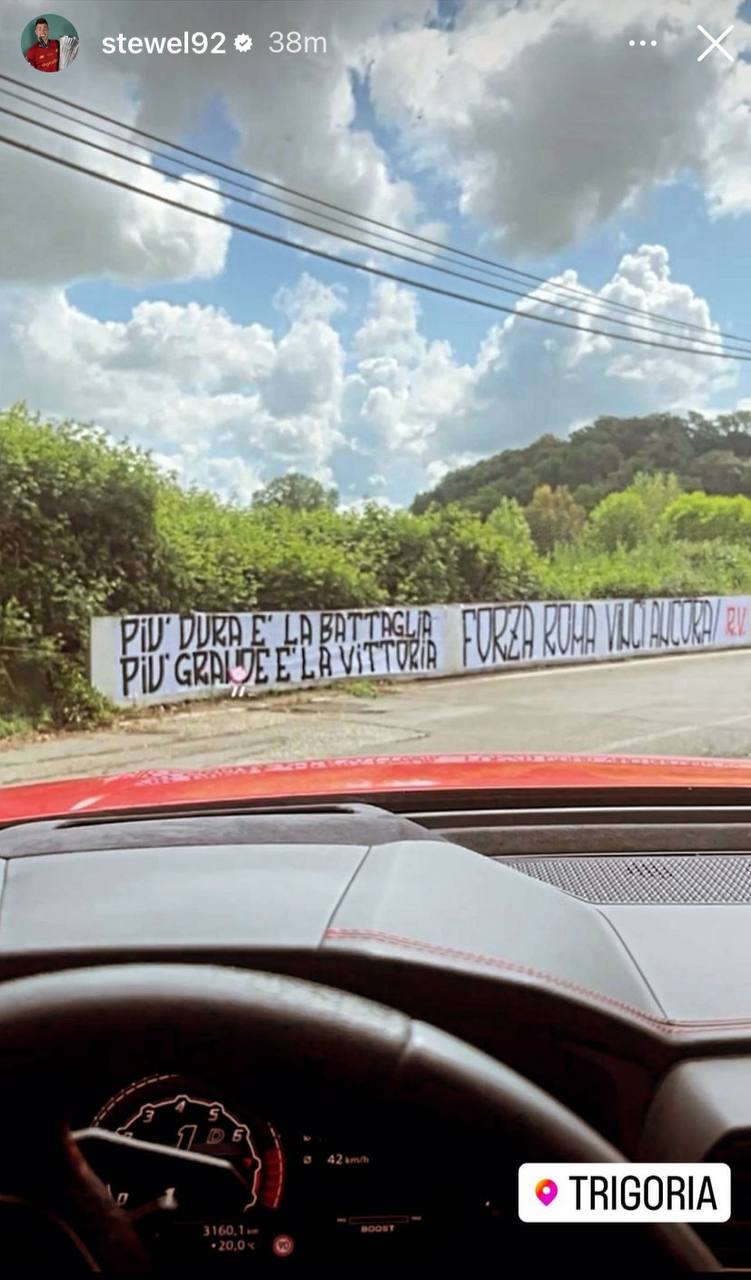 stewel92 38m
PIU' DURA E' LA BATTAGLIA
PIU' GRANDE E' LA VITTORIA
FORZA ROMA VINCI ANCORA! R.V.
3 4 5 6
1 D
42 km/h
3160,1 km
+20,0 °C
90
BOOST
TRIGORIA